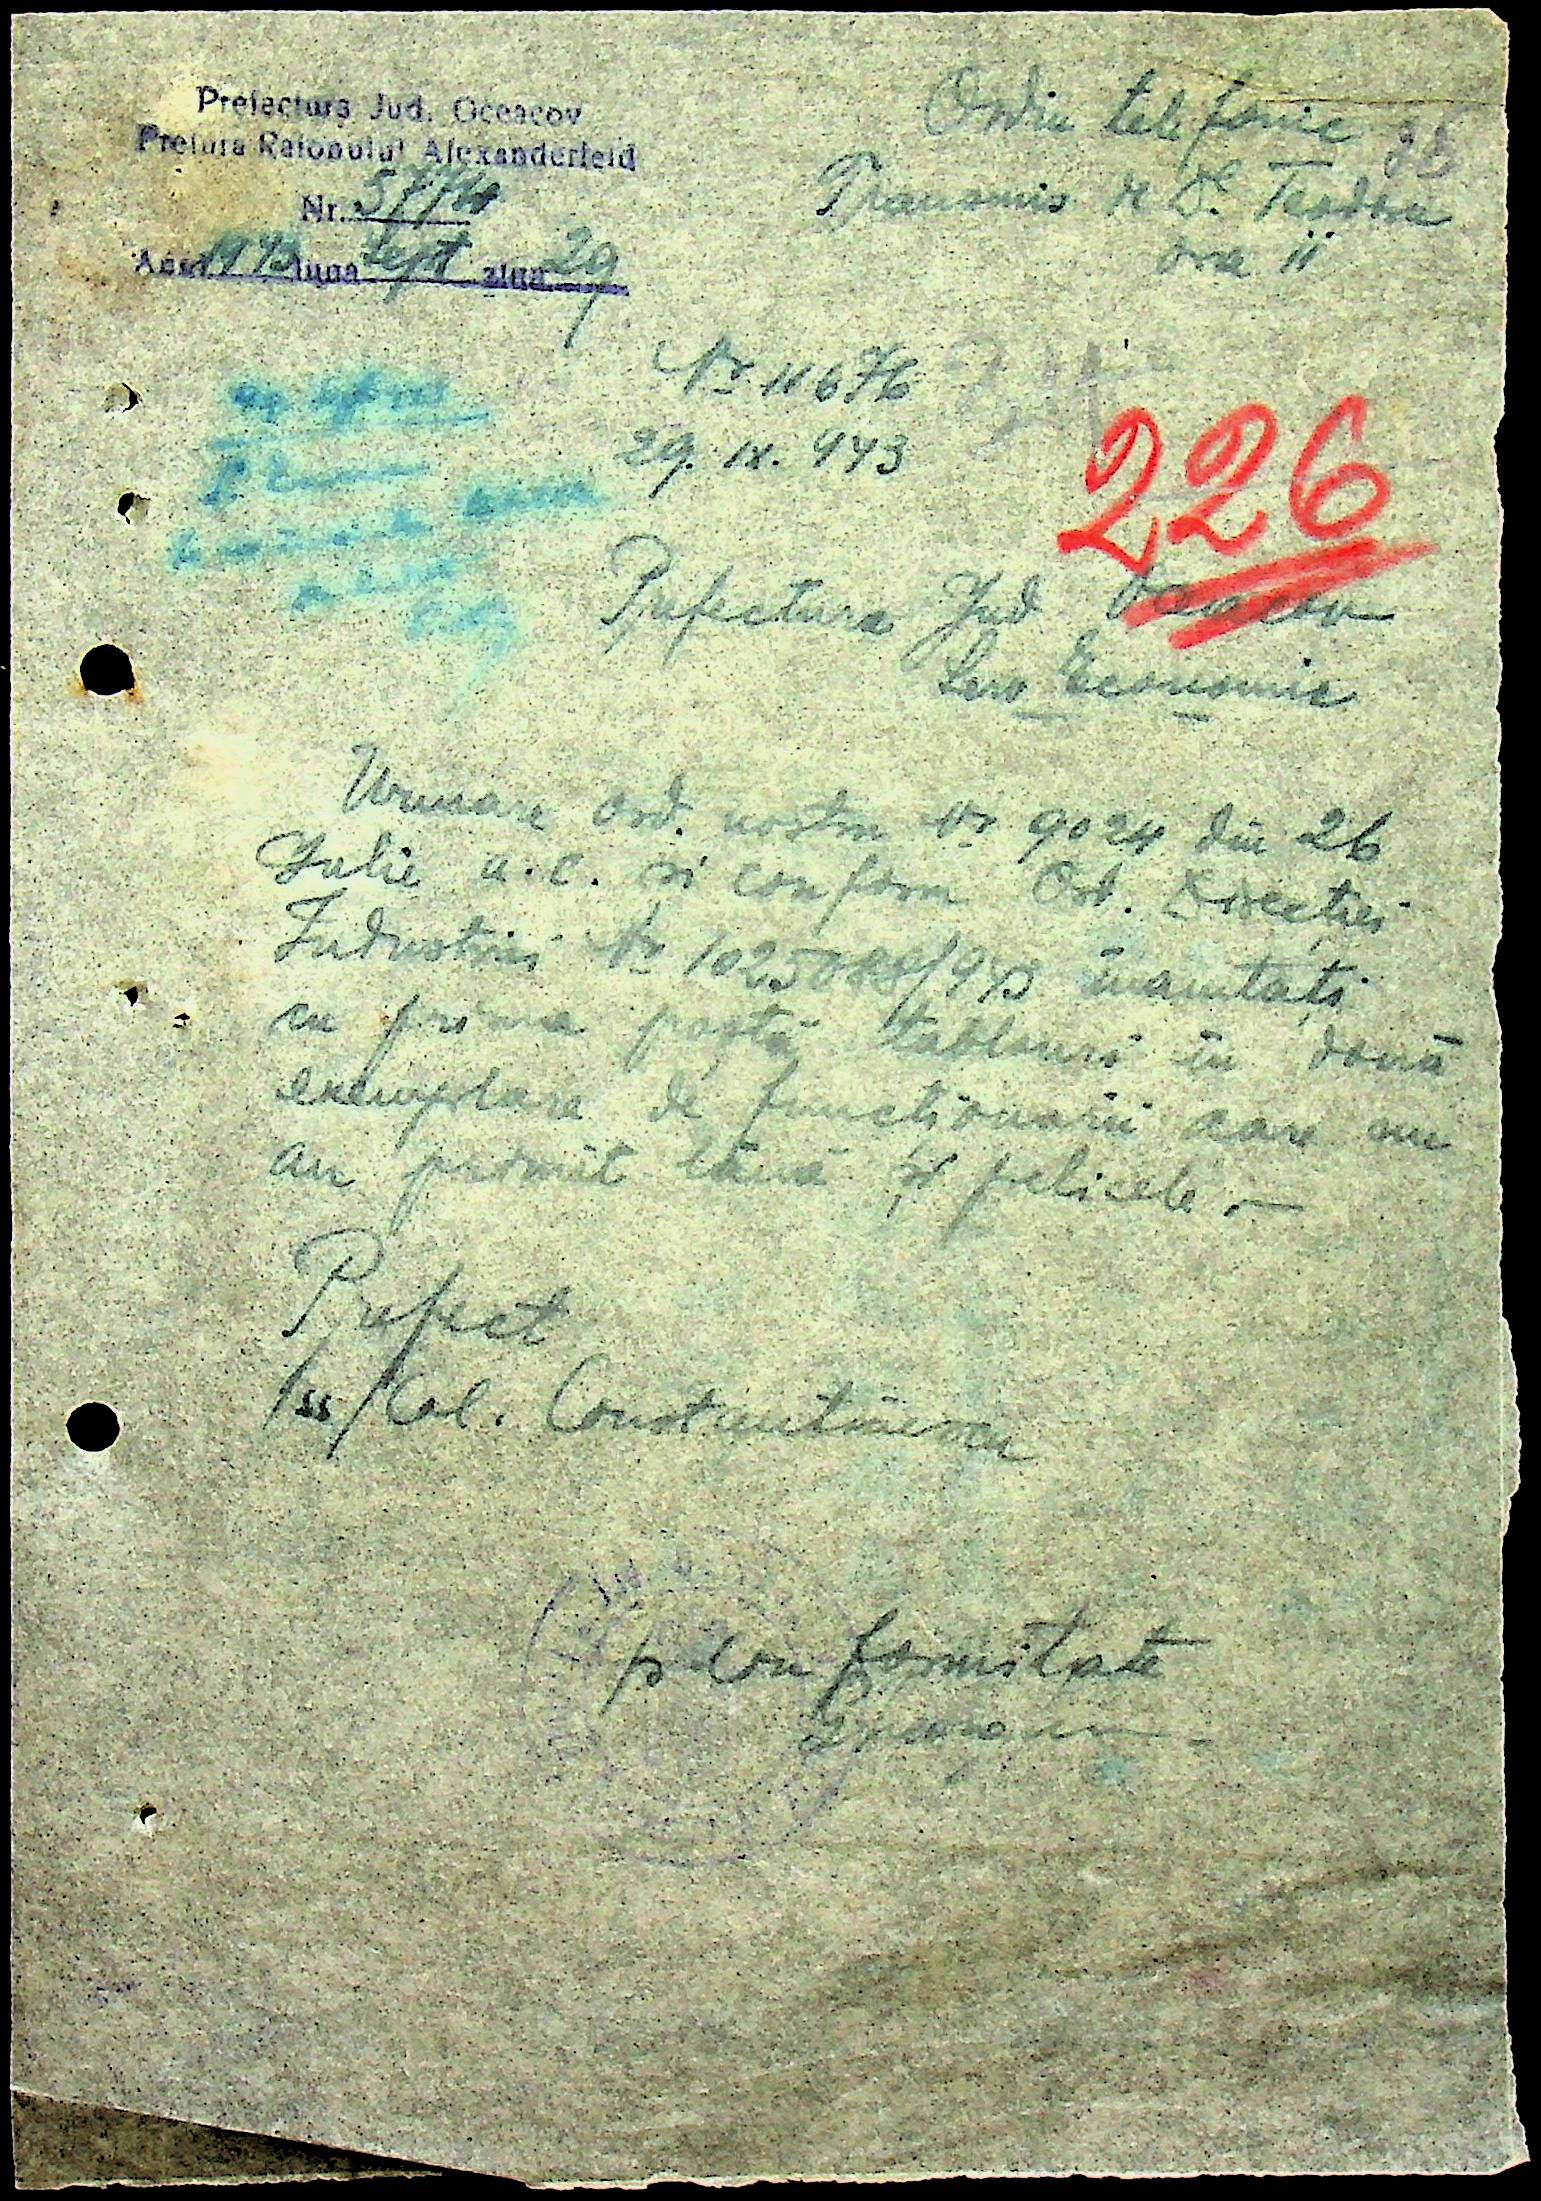 Prefectura Jud. Oceacov
Pretura Raionului Alexanderfeld
Nr.
Anul 1943 luna Sept ziua 29
Ordin telefonic
Transmis de D. Teodoru
ora 11
Nr. 11676
29. IX. 943
226
Prefectura Jud Oceacov
Serv Economic
Urmare ord. nostru Nr 9024 din 26
Iulie a.c. și conform Ord. Direcției
Industriei Nr 1025088/943 înaintați
cu prima poștă tablouri în două
exemplare de funcționarii care nu
au primit lână și pelicele
Prefect
/ss/ Col. Constantinescu
p conformitate